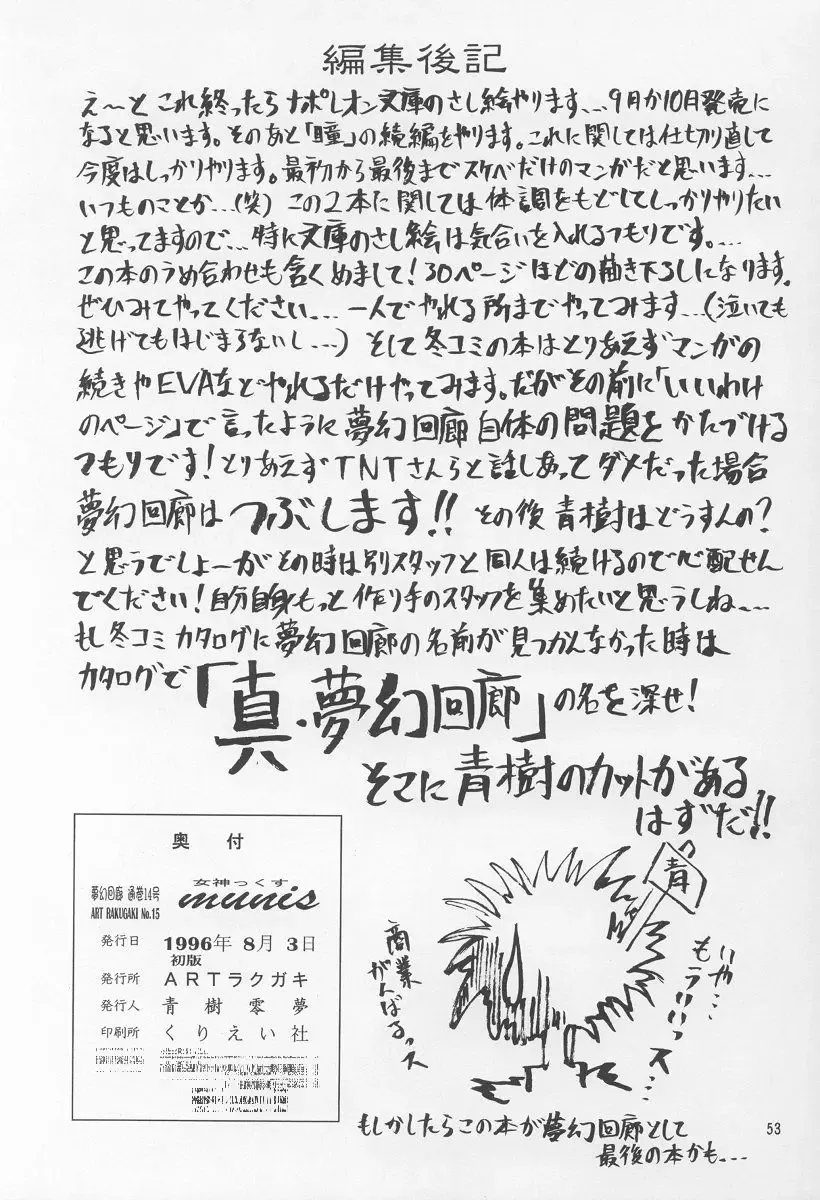 編集後記
え〜と これ終ったら ナポレオン文庫のさし絵やります...9月か10月発売に
なると思います。そのあと「瞳」の続編をやります。これに関しては仕切り直して
今度はしっかりやります。最初から最後までスケベだけのマンガだと思います...
いつものことか...(笑) この2本に関しては 体調をもどしてしっかりやりたい
と思ってますので...特に文庫のさし絵は気合いを入れるつもりです。...
この本のうめ合わせも含くめまして!30ページほどの描き下ろしになります。
ぜひみてやってください...一人でやれる所までやってみます...(泣いても
逃げてもはじまらないし...) そして冬コミの本はとりあえずマンガの
続きやEVAなどやれるだけやってみます。だがその前に「いいわけ
のページ」で言ったように夢幻回廊自体の問題をかたづける
つもりです!とりあえずTNTさんらと話しあってダメだった場合
夢幻回廊は つぶします!! その後青樹はどうすんの?
と思うでしょーが その時は別スタッフと同人は続けるので心配せん
でください!自分自身もっと作り手のスタッフを集めたいと思うしね...
もし冬コミカタログに夢幻回廊の名前が見つかんなかった時は
カタログで「真・夢幻回廊」の名を深せ!
そこに青樹のカットがある
はずだ!!
奥付
夢幻回廊 通巻14号
ART RAKUGAKI No.15
女神っくす
munis
発行日 1996年 8月 3日
初版
発行所 ARTラクガキ
発行人 青樹零夢
印刷所 くりえい社
青
商業
がんばるっス
いや...
もういいっス...
もしかしたらこの本が夢幻回廊として
最後の本かも...
53